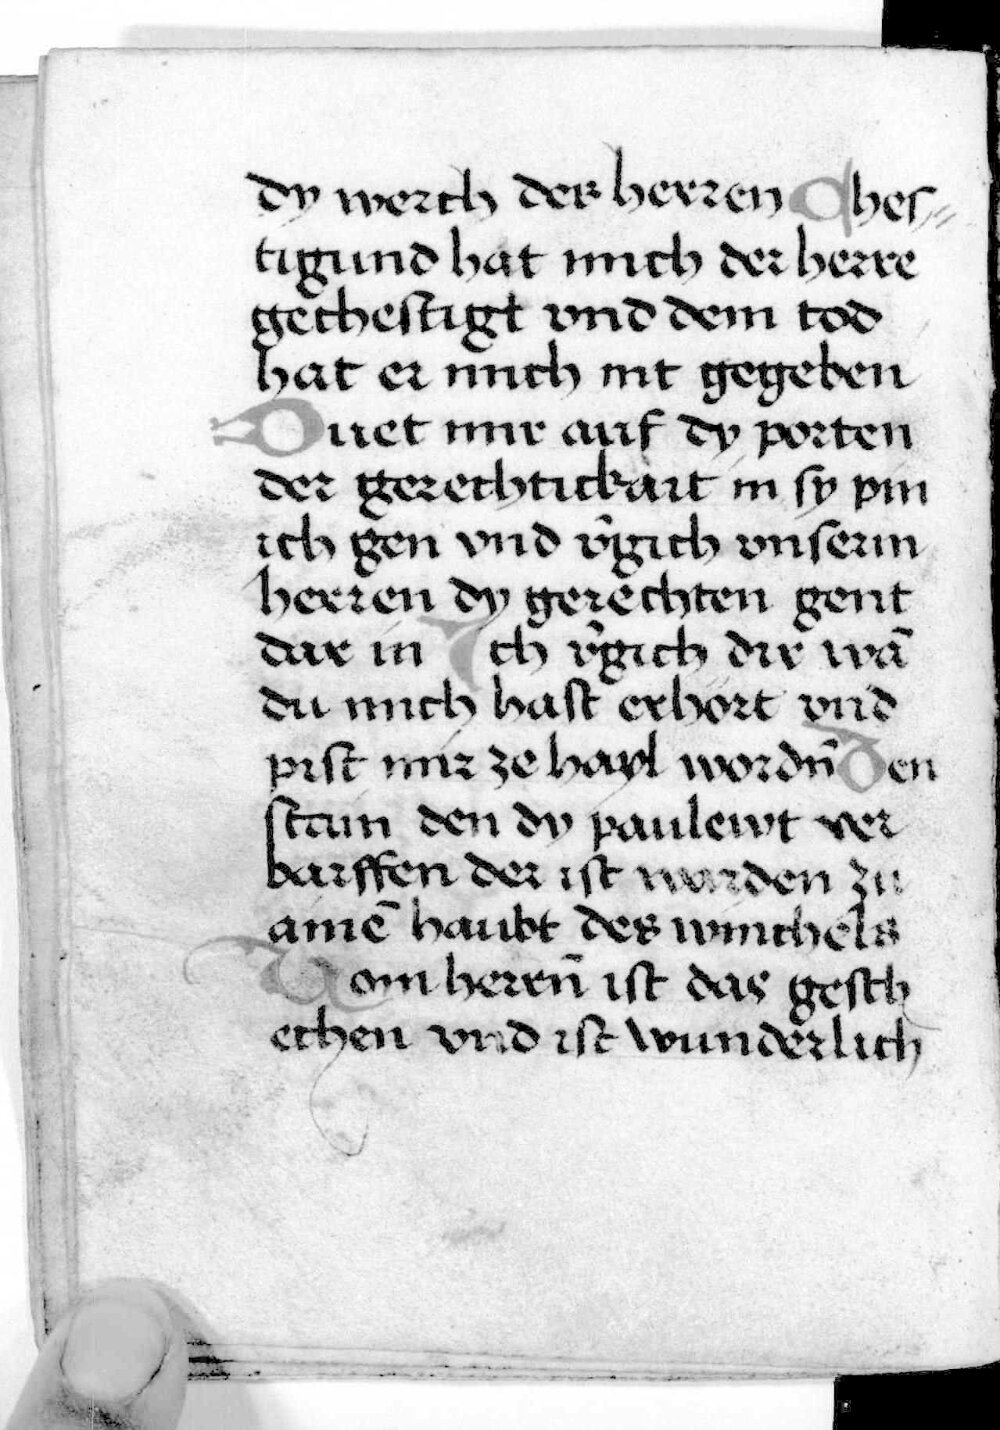 dy werch des herren Ches⸗
tigund hat mich der herre
gechestigt vnd dem tod
hat er mich nit gegeben
Duet mir auf dy porten
der gerechtickait in sy pin
ich gen vnd v̉gich vnserm
herren dy gerechten gent
dar in Ich v̉gich dir wā
du mich hast erhört vnd
pist mir ze hayl wordn̄ Den
stain den dy paulewt ver
barffen der ist warden zu
aimē haubt des winchels
Vom herrn̄ ist das gesch
echen vnd ist wunderlich